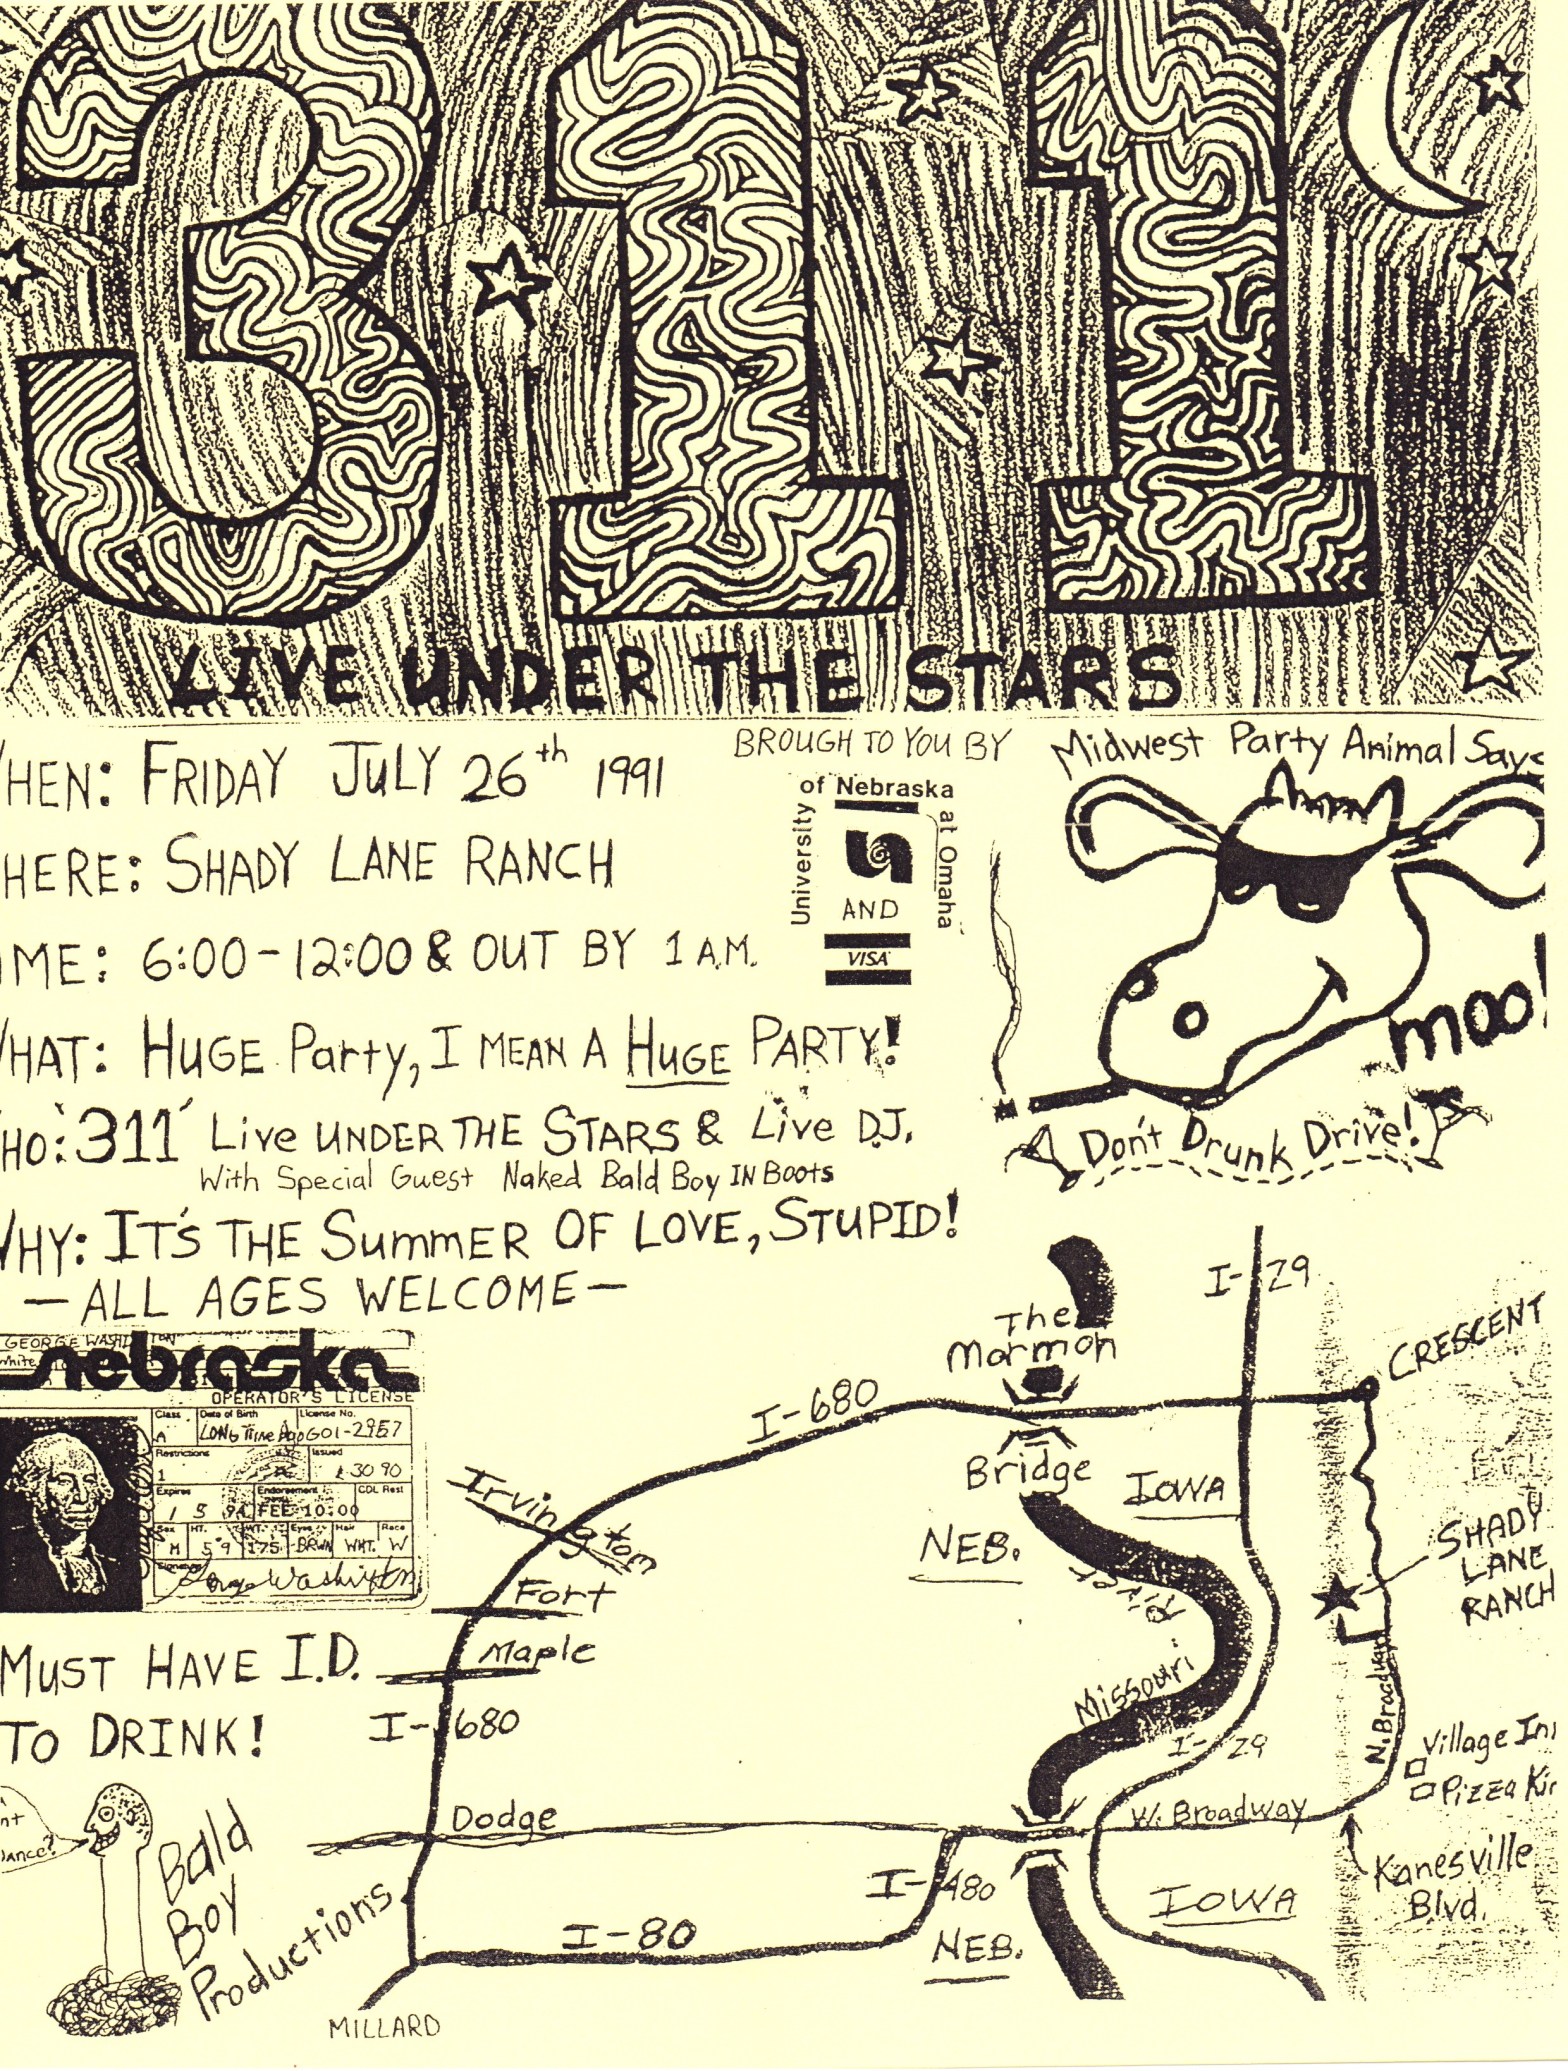 311
LIVE UNDER THE STARS
WHEN: FRIDAY JULY 26th 1991
WHERE: SHADY LANE RANCH
TIME: 6:00-12:00 & OUT BY 1 A.M.
WHAT: HUGE Party, I MEAN A HUGE PARTY!
WHO: '311' Live UNDER THE STARS & Live D.J.
With Special Guest Naked Bald Boy IN Boots
WHY: IT'S THE SummER OF LOVE, STUPID!
— ALL AGES WELCOME —
BROUGH TO YOU BY
University of Nebraska at Omaha
AND
VISA
Midwest Party Animal Says
moo!
Don't Drunk Drive!
GEORGE WASHINGTON
White
nebraska
OPERATOR'S LICENSE
Class Date of Birth License No.
A LONG Time Ago G01-2957
Restrictions Issued
1 30 90
Expires Endorsement CDL Rest
1 5 94 FEE 10:00
Sex HT. WT. Eyes Hair Race
M 5 9 175 BRWN WHT. W
Signature
George Washington
MUST HAVE I.D.
TO DRINK!
Bald
Boy
Productions
The
Mormon
Bridge
I-29
CRESCENT
I-680
Irvington
IOWA
NEB.
SHADY
LANE
RANCH
Fort
River
Maple
Missouri
N. Broadway
I-680
I-29
Village In
Pizza Kin
Dodge
W. Broadway
Kanesville
Blvd.
I-480
IOWA
I-80
NEB.
MILLARD